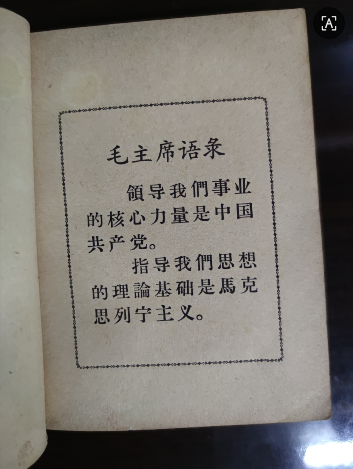 毛主席语录
領导我們事业
的核心力量是中国
共产党。
指导我們思想
的理論基础是馬克
思列宁主义。